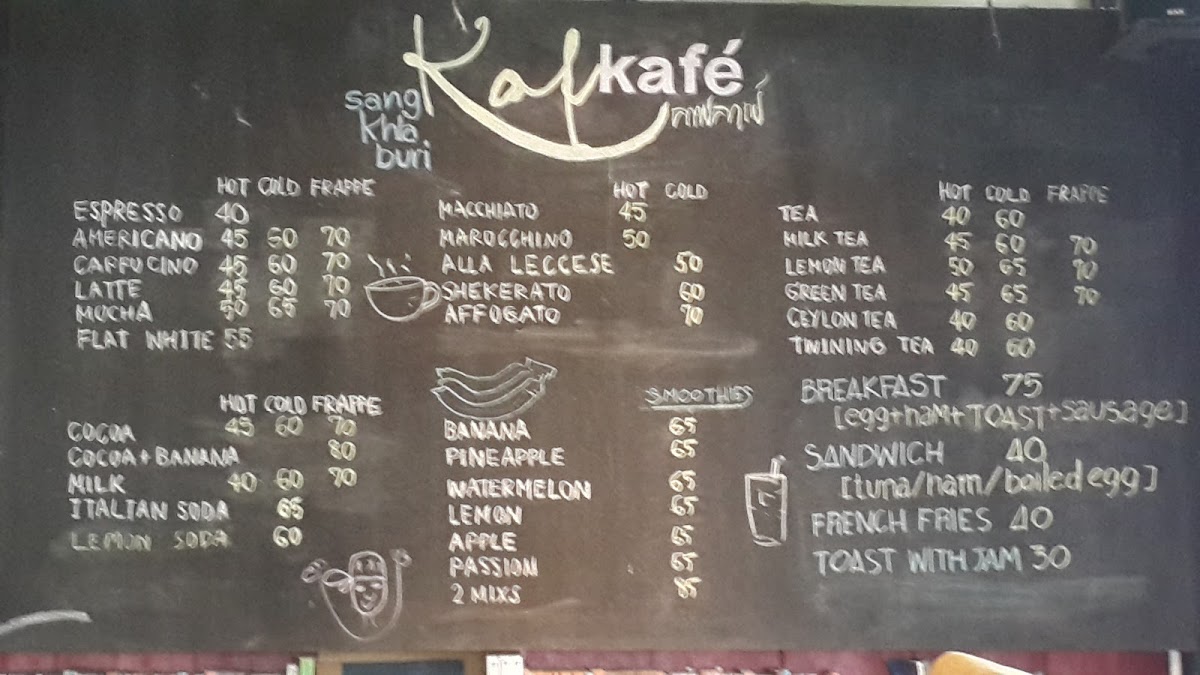 Kaf kafé
sang
khla
buri
กาฟคาเฟ่
HOT COLD FRAPPE
ESPRESSO 40
AMERICANO 45 60 70
CAPPUCINO 45 60 70
LATTE 45 60 70
MOCHA 50 65 70
FLAT WHITE 55
HOT COLD FRAPPE
COCOA 45 60 70
COCOA + BANANA 80
MILK 40 60 70
ITALIAN SODA 65
LEMON SODA 60
HOT COLD
MACCHIATO 45
MAROCCHINO 50
ALLA LECCESE 50
SHEKERATO 60
AFFOGATO 70
SMOOTHIES
BANANA 65
PINEAPPLE 65
WATERMELON 65
LEMON 65
APPLE 65
PASSION 65
2 MIXS 85
HOT COLD FRAPPE
TEA 40 60
MILK TEA 45 60 70
LEMON TEA 50 65 70
GREEN TEA 45 65 70
CEYLON TEA 40 60
TWINING TEA 40 60
BREAKFAST 75
[egg+ham+TOAST+sausage]
SANDWICH 40
[tuna/ham/boiled egg]
FRENCH FRIES 40
TOAST WITH JAM 30